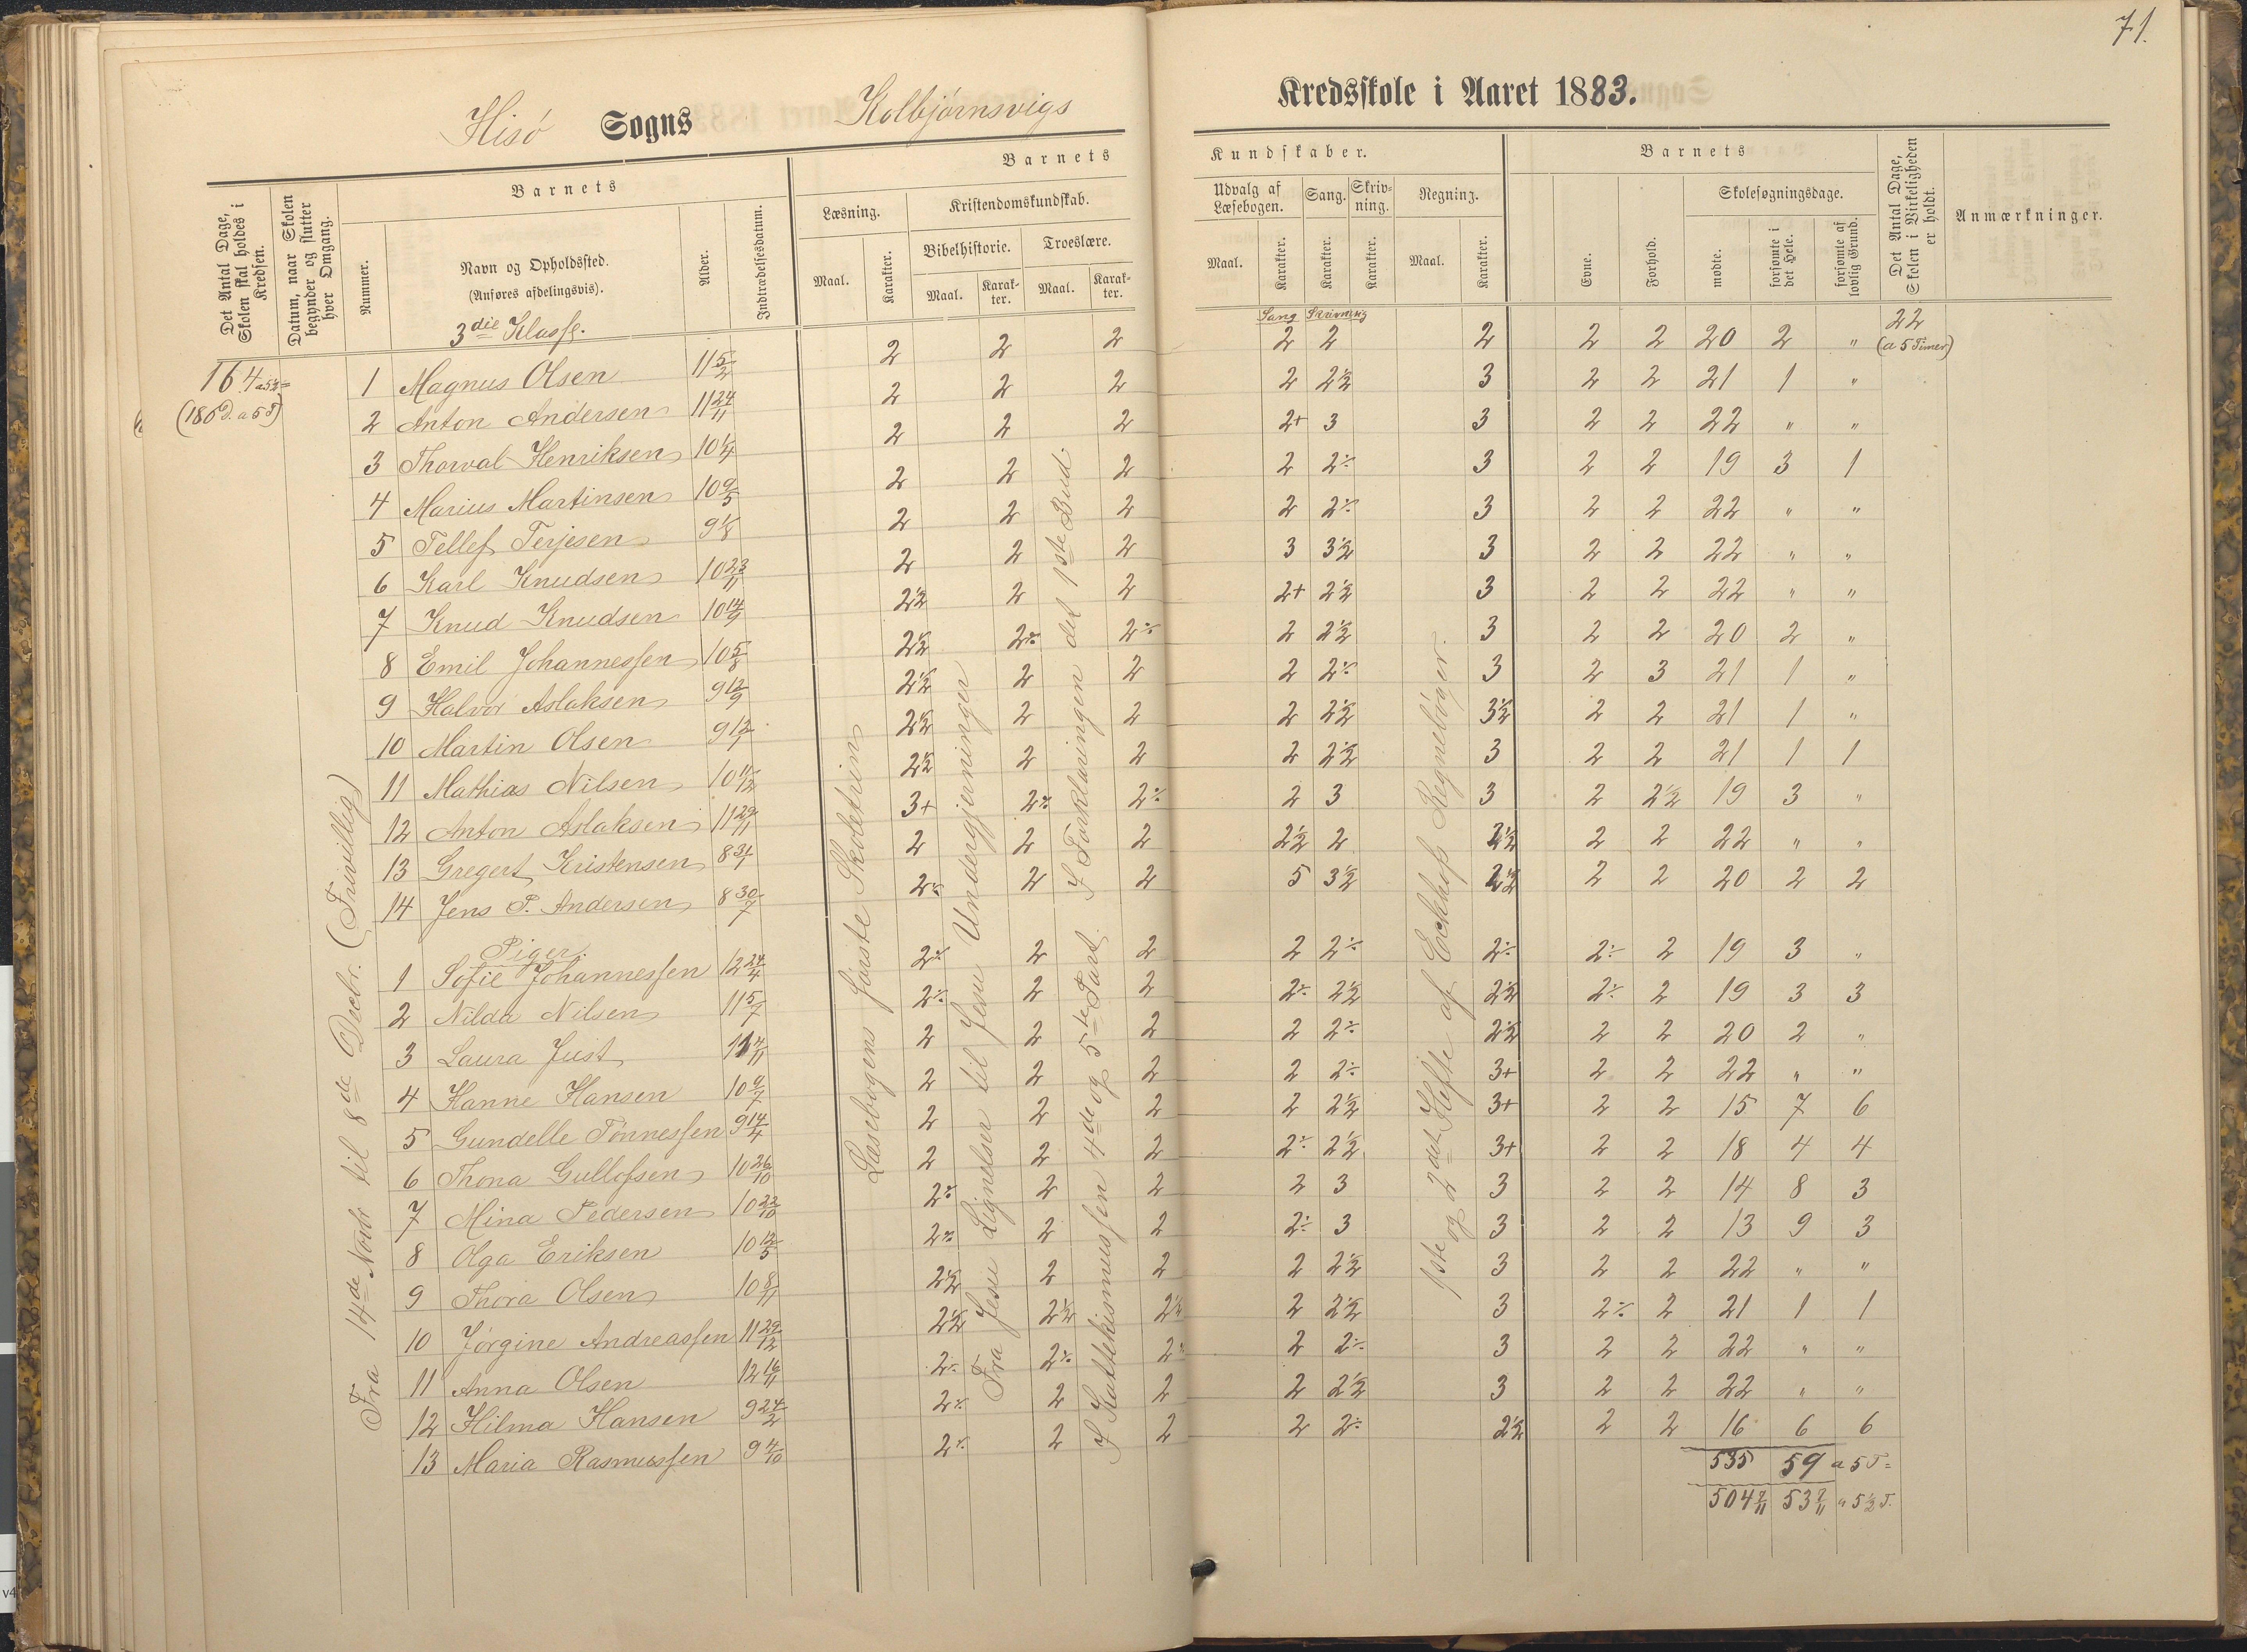 71.
Hisö Sogns Kolbjørnsvigs Kredsskole i Aaret 1883.
Det Antal Dage, Skolen skal holdes i Kredsen.
Datum, naar Skolen begynder og slutter hver Omgang.
Barnets
Nummer.
Navn og Opholdssted.
(Anføres afdelingsvis).
Alder.
Indtrædelsesdatum.
Barnets Kundskaber.
Læsning.
Maal. Karakter.
Kristendomskundskab.
Bibelhistorie. Troeslære.
Maal. Karakter. Maal. Karakter.
Udvalg af Læsebogen. Sang. Skrivning. Regning.
Maal. Karakter. Karakter. Karakter. Maal. Karakter.
Barnets
Evne. Forhold.
Skolesøgningsdage.
mødte. forsømte i det Hele. forsømte af lovlig Grund.
Det Antal Dage, Skolen i Virkeligheden er holdt.
Anmærkninger.
3die Klasse.
Sang Skrivning
164 a 5½ =
(180 D. a 5 T)
22
(a 5 Timer)
1 Magnus Olsen 11 5/2 2 2 2 2 2 2 2 2 20 2 "
2 Anton Andersen 11 24/11 2 2 2 2 2½ 3 2 2 21 1 "
3 Thorval Henriksen 10 1/4 2 2 2 2+ 3 3 2 2 22 " "
4 Marius Martinsen 10 9/5 2 2 2 2 2÷ 3 2 2 19 3 1
5 Tellef Terjesen 9 1/8 2 2 2 2 2÷ 3 2 2 22 " "
6 Karl Knudsen 10 23/11 2 2 2 3 3½ 3 2 2 22 " "
7 Knud Knudsen 10 14/9 2½ 2 2 2+ 2½ 3 2 2 22 " "
8 Emil Johannessen 10 5/8 2½ 2÷ 2÷ 2 2½ 3 2 2 20 2 "
9 Halvor Aslaksen 9 12/9 2½ 2 2 2 2÷ 3 2 3 21 1 "
10 Martin Olsen 9 12/7 2½ 2 2 2 2½ 3½ 2 2 21 1 "
11 Mathias Nilsen 10 11/12 2½ 2 2 2 2½ 3 2 2 21 1 1
12 Anton Aslaksen 11 29/11 3+ 2÷ 2÷ 2 3 3 2 2½ 19 3 "
13 Gregert Kristensen 8 31/1 2 2 2 2½ 2 2½ 2 2 22 " "
14 Jens P. Andersen 8 30/7 2÷ 2 2 5 3½ 2½ 2 2 20 2 2
Piger.
1 Sofie Johannessen 12 24/4 2÷ 2 2 2 2÷ 2÷ 2÷ 2 19 3 "
2 Nilda Nilsen 11 5/7 2÷ 2 2 2÷ 2½ 2½ 2÷ 2 19 3 3
3 Laura Just 11 4/11 2 2 2 2 2÷ 2½ 2 2 20 2 "
4 Hanne Hansen 10 9/7 2 2 2 2 2÷ 3+ 2 2 22 " "
5 Gundelle Tönnessen 9 14/4 2 2 2 2 2½ 3+ 2 2 15 7 6
6 Thona Gullofsen 10 26/10 2 2 2 2÷ 2½ 3+ 2 2 18 4 4
7 Mina Pedersen 10 22/10 2÷ 2 2 2 3 3 2 2 14 8 3
8 Olga Eriksen 10 12/5 2÷ 2 2 2÷ 3 3 2 2 13 9 3
9 Thora Olsen 10 8/11 2½ 2 2 2 2½ 3 2 2 22 " "
10 Jörgine Andreassen 11 29/12 2½ 2½ 2½ 2 2½ 3 2÷ 2 21 1 1
11 Anna Olsen 12 16/11 2÷ 2÷ 2÷ 2 2÷ 3 2 2 22 " "
12 Hilma Hansen 9 24/2 2÷ 2 2 2 2½ 3 2 2 22 " "
13 Maria Rasmussen 9 4/10 2÷ 2 2 2 2÷ 2½ 2 2 16 6 6
535 59 a 5 T =
504 7/11 53 7/11 a 5½ T.
Fra 14de Novbr til 8de Decbr. (Frivillig)
Læsebogens første Skoletrin
Fra Jesu Lignelser til Jesu Undergjerninger
I Kattekismussen 4de og 5te Part. I Forklaringen det 1ste Bud.
1ste og 2det Hefte af Eckhoffs Regnebøger.